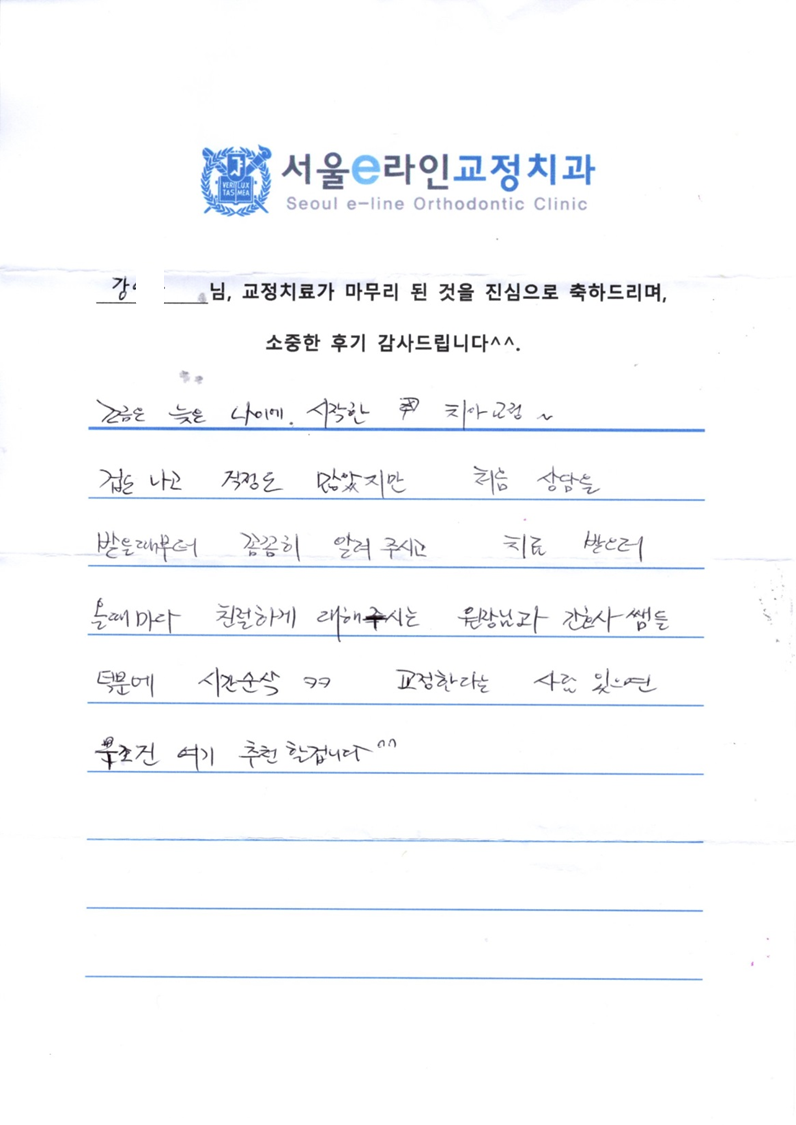 서울e라인교정치과
Seoul e-line Orthodontic Clinic
VERI LUX
TAS MEA
강 님, 교정치료가 마무리 된 것을 진심으로 축하드리며,
소중한 후기 감사드립니다^^.
조금은 늦은 나이에. 시작한 치아교정 ~
겁도 나고 걱정도 많았지만 처음 상담을
받을때부터 꼼꼼히 알려 주시고 치료 받으러
올때마다 친절하게 대해주시는 원장님과 간호사쌤들
덕분에 시간순삭 ㅋㅋ 교정한다는 사람 있으면
무조건 여기 추천할겁니다^^